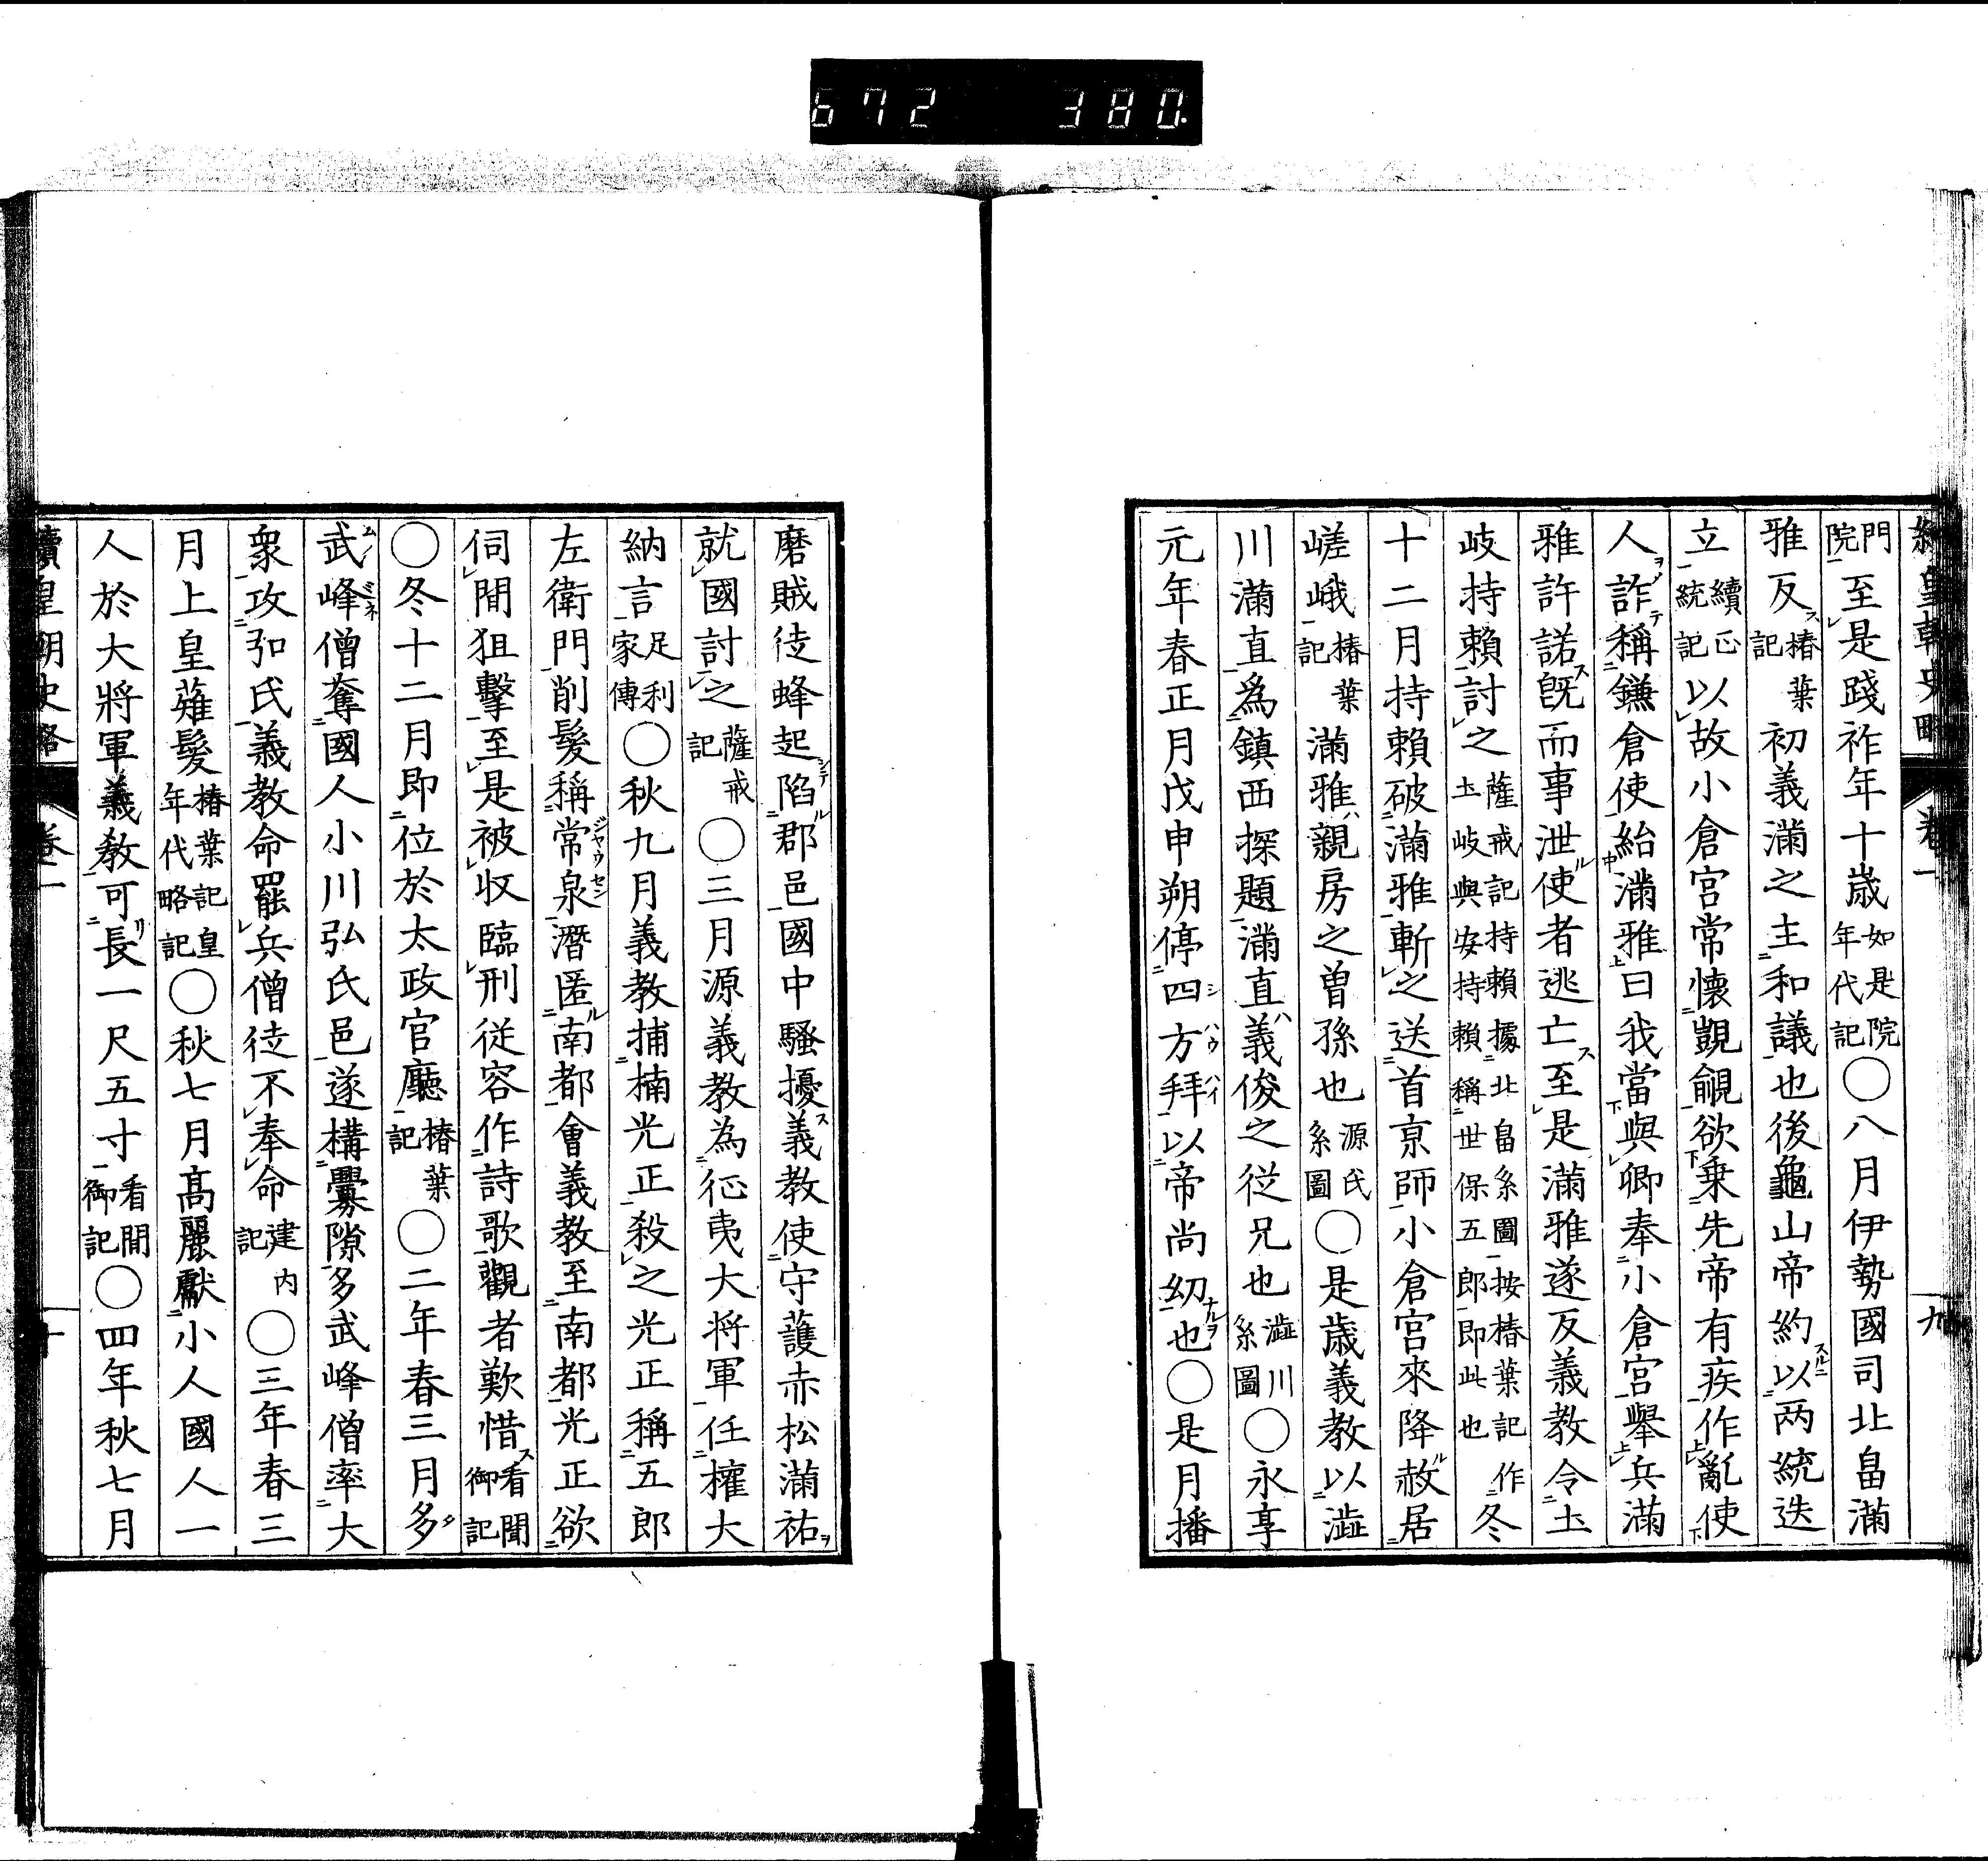 672 380.
續皇朝史略 卷一 九
門院至是踐祚年十歳如是院年代記〇八月伊勢國司北畠滿
雅反椿葉記初義滿之主和議也後龜山帝約以两統迭
立續正統記以故小倉宮常懷覬覦欲乗先帝有疾作亂使
人詐稱鎌倉使紿滿雅曰我當與卿奉小倉宮舉兵滿
雅許諾既而事泄使者逃亡至是滿雅遂反義教令土
岐持賴討之薩戒記持賴據北畠系圖按椿葉記作土岐與安持賴稱世保五郎即此也冬
十二月持賴破滿雅斬之送首京師小倉宮來降赦居
嵯峨椿葉記滿雅親房之曽孫也源氏系圖〇是歳義教以澁
川滿直為鎮西探題滿直義俊之從兄也澁川系圖〇永享
元年春正月戊申朔停四方拜以帝尚幼也〇是月播
磨賊徒蜂起陷郡邑國中騷擾義教使守護赤松滿祐
就國討之薩戒記〇三月源義教為征夷大将軍任權大
納言足利家傳〇秋九月義教捕楠光正殺之光正稱五郎
左衛門削髮稱常泉潛匿南都會義教至南都光正欲
伺間狙擊至是被収臨刑従容作詩歌觀者歎惜看聞御記
〇冬十二月即位於太政官廳椿葉記〇二年春三月多
武峰僧奪國人小川弘氏邑遂構釁隙多武峰僧率大
衆攻弘氏義教命罷兵僧徒不奉命建内記〇三年春三
月上皇薙髮椿葉記皇年代略記〇秋七月髙麗獻小人國人一
人於大將軍義教可長一尺五寸看聞御記〇四年秋七月
續皇朝史略 卷一 十